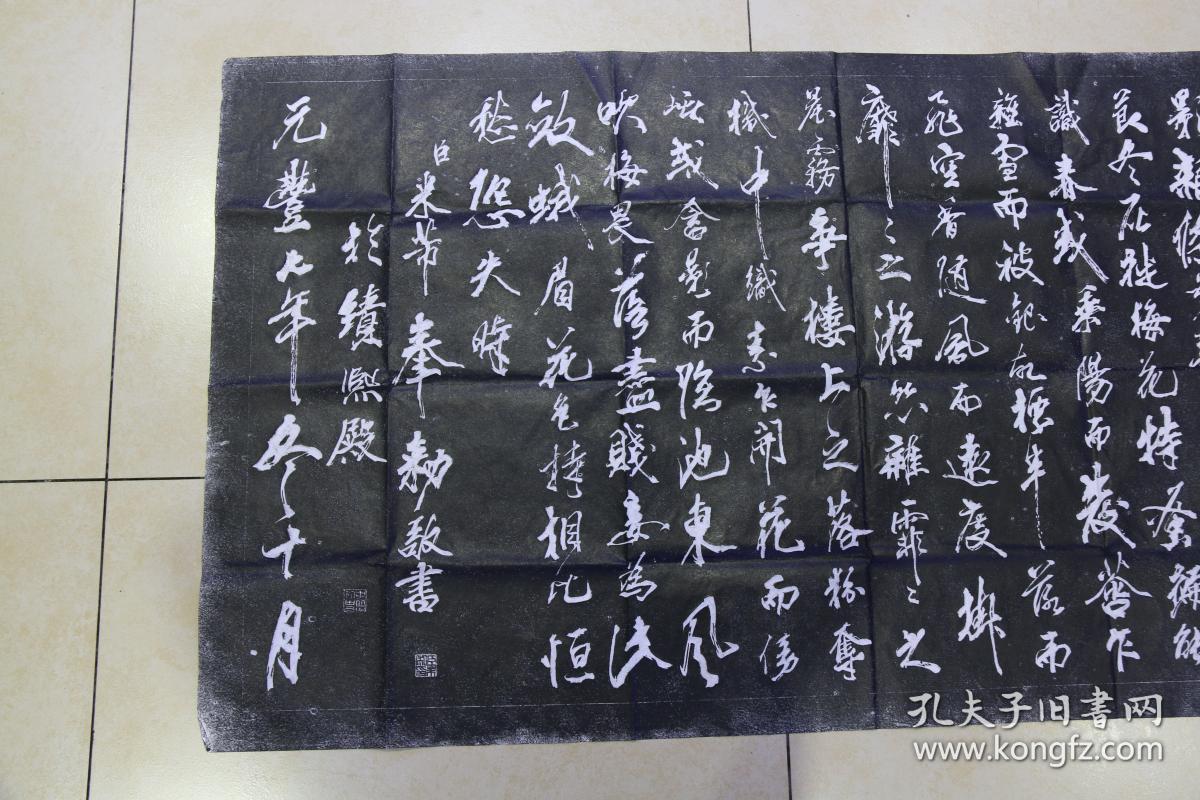 梅花特蚤偏能
識春或乘陽而發 乍
雜雪而被銀 標半落而
飛空香随風而遠度掛
靡〻之游丝雜霏〻之
晨霧争樓上之落粉奪
機中織素乍開花而傍
巘或含影而臨池東風
吹梅畏落盡賤妾為此
斂蛾眉花色持相比恒
愁恐失時
臣米芾奉勅敬書
於續熙殿
元豐七年冬十月
孔夫子旧書网
www.kongfz.com